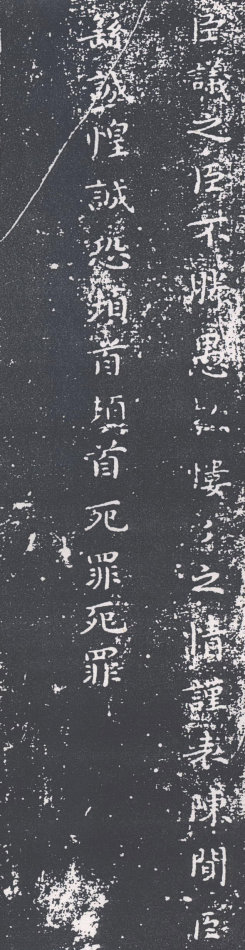 臣議之臣不勝愚款慺〻之情謹表陳聞臣
繇誠惶誠恐頓首頓首死罪死罪